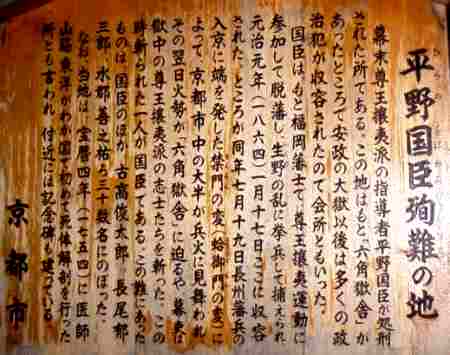 平野国臣殉難の地
幕末尊王攘夷派の指導者平野国臣が処刑
された所である。この地はもと「六角獄舎」が
あったところで安政の大獄以後は多くの政
治犯が収容されたので会所ともいった。
国臣は、もと福岡藩士で尊王攘夷運動に
参加して脱藩し、生野の乱に挙兵して捕えられ、
元治元年(一八六四)一月十七日ここに収容
された。ところが同年七月十九日長州藩兵の
入京に端を発した禁門の変(蛤御門の変)に
よって、京都市中の大半が兵火に見舞われ
その翌日火勢が「六角獄舎」に迫るや、幕吏は
獄中の尊王攘夷派の志士たちを斬った。この
時斬られた一人が国臣である。この難にあった
ものは、国臣のほか、古高俊太郎、長尾郁
三郎、水郡善之祐ら三十数名にのぼった。
なお、当地は、宝暦四年(一七五四)に医師
山脇東洋がわが国で初めて死体解剖を行った
所とも言われ、付近には記念碑も建っている。
京都市